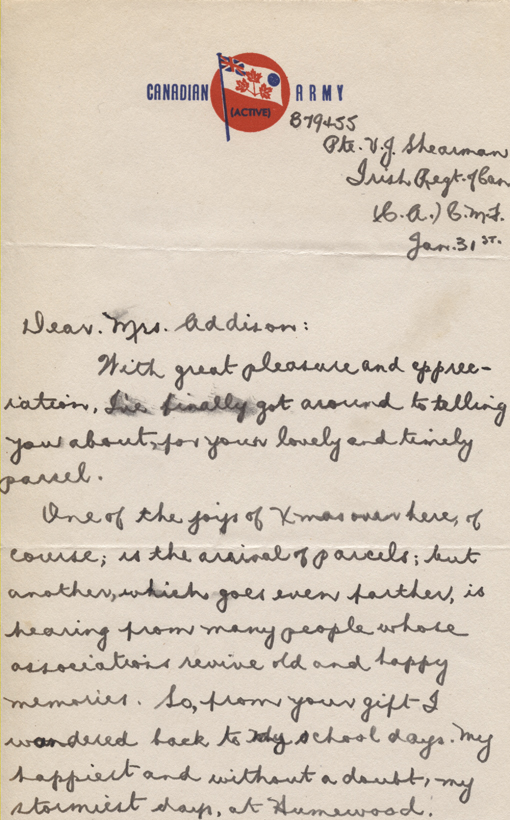 CANADIAN ARMY
(ACTIVE)
B79455
Pte. V.J. Shearman
Irish Regt. of Can
(C.A.) C.M.F.
Jan. 31ST.
Dear. Mrs. Addison:
With great pleasure and apprec-
iation, I've finally got around to telling
you about, for your lovely and timely
parsel.
One of the joys of Xmas over here, of
course; is the arrival of parcels; but
another, which goes even farther, is
hearing from many people whose
associations revive old and happy
memories. So, from your gift I
wandered back to my school days. My
happiest and without a doubt, my
stormiest days, at Humewood.